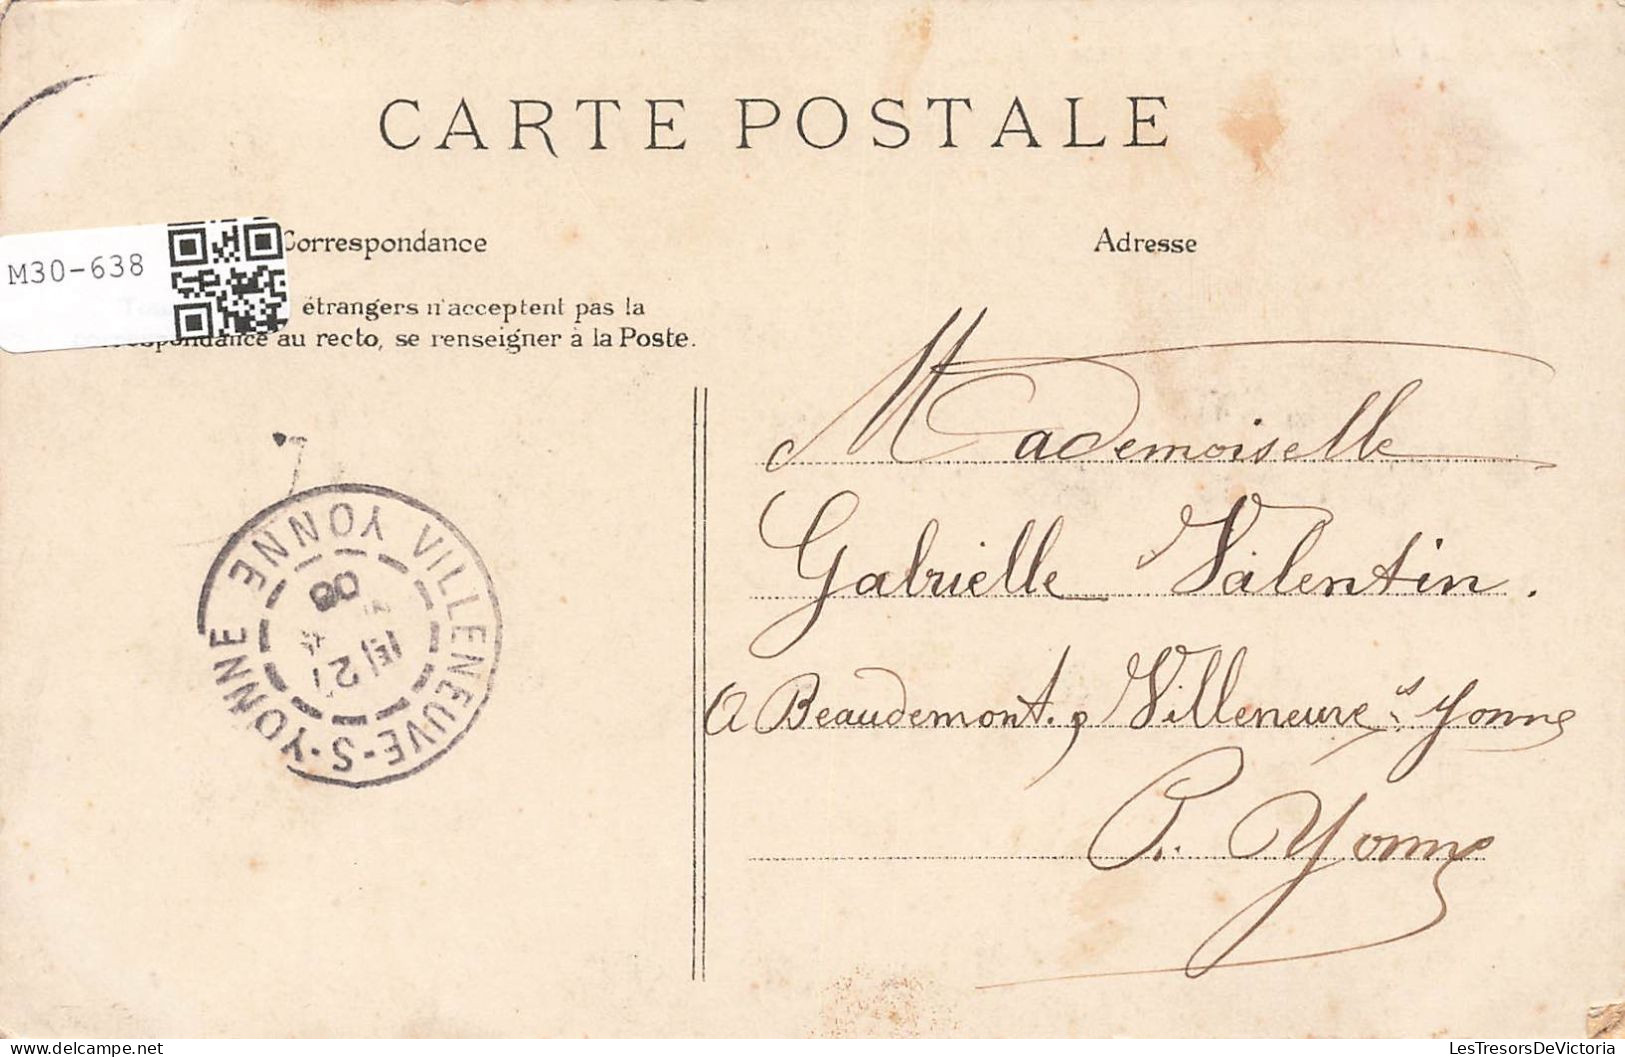 CARTE POSTALE
M30-638
Correspondance
étrangers n'acceptent pas la
correspondance au recto, se renseigner à la Poste.
Adresse
Mademoiselle
Gabrielle Valentin.
A Beaudemont. p Villeneuve s/ Yonne
P. Yonne
VILLENEUVE-S-YONNE YONNE
27
08
LesTresorsDeVictoria